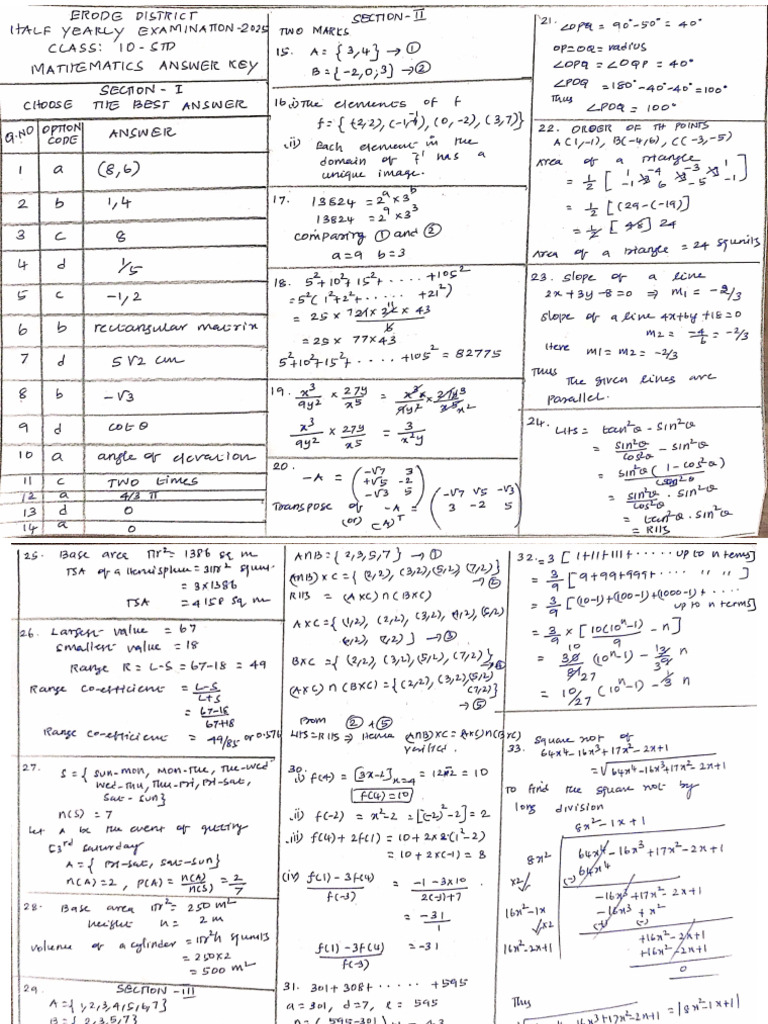 ERODE DISTRICT
HALF YEARLY EXAMINATION-2025
CLASS: 10-STD
MATHEMATICS ANSWER KEY
SECTION - I
CHOOSE THE BEST ANSWER
Q.NO OPTION CODE ANSWER
1 a (8,6)
2 b 1,4
3 c 8
4 d 1/5
5 c -1,2
6 b rectangular matrix
7 d 5√2 cm
8 b -√3
9 d cot θ
10 a angle of elevation
11 c TWO times
12 a 4/3 π
13 d 0
14 a 0
SECTION-II
TWO MARKS
15. A = {3,4} → ①
B = {-2,0,3} → ②
16. i) The elements of f
f = {(-2,2), (-1,-1), (0,-2), (3,7)}
ii) Each element in the
domain of f has a
unique image.
17. 13824 = 2^a × 3^b
13824 = 2^9 × 3^3
comparing ① and ②
a=9 b=3
18. 5²+10²+15²+ ..... +105²
= 5²(1²+2²+ ..... +21²)
= 25 × 21 × 22 × 43 / 6
= 25 × 77 × 43
5²+10²+15²+ .... +105² = 82775
19. x³/9y² × 27y/x⁵ = x³/9y² × 27y/x⁵
x³/9y² × 27y/x⁵ = 3/x²y
20. -A = (-√7 3
+√5 -2
-√3 5)
Transpose of -A = (-√7 √5 -√3
(or) (-A)ᵀ 3 -2 5)
21. ∠OPQ = 90°-50° = 40°
OP=OQ = radius
∠OPQ = ∠OQP = 40°
∠POQ = 180°-40°-40° = 100°
Thus
∠POQ = 100°
22. ORDER OF TH POINTS
A(1,-1), B(-4,6), C(-3,-5)
Area of a triangle
= 1/2 [1 -4 -3 1
-1 6 -5 -1]
= 1/2 [(29-(-19)]
= 1/2 [48] 24
Area of a triangle = 24 sq units
23. Slope of a line
2x+3y-8=0 ⇒ m1 = -2/3
Slope of a line 4x+6y+18=0
m2 = -4/6 = -2/3
Here m1 = m2 = -2/3
Thus
The given lines are
parallel.
24. LHS = tan²θ - sin²θ
= sin²θ/cos²θ - sin²θ
= sin²θ (1-cos²θ)/cos²θ
= sin²θ/cos²θ . sin²θ
= tan²θ . sin²θ
= RHS
25. Base area πr² = 1386 sq m
TSA of a Hemisphere = 3πr² squni.
= 3×1386
TSA = 4158 sq m
26. Largest value = 67
Smallest value = 18
Range R = L-S = 67-18 = 49
Range co-efficient = L-S/L+S
= 67-18/67+18
Range co-efficient = 49/85 or 0.576
27. S = {Sun-mon, Mon-Tue, Tue-Wed
Wed-Thu, Thu-Fri, Fri-Sat,
Sat-Sun}
n(S) = 7
Let A be the event of getting
53rd Saturday
A = {Fri-Sat, Sat-Sun}
n(A) = 2, P(A) = n(A)/n(S) = 2/7
28. Base area πr² = 250 m²
height h = 2m
Volume of a cylinder = πr²h squnits
= 250×2
= 500 m²
29. SECTION - III
A = {1,2,3,4,5,6,7}
B = {2,3,5,7}
A∩B = {2,3,5,7} → ①
(A∩B)×C = {(2,2), (3,2), (5,2) (7,2)} → ②
RHS = (A×C) ∩ (B×C)
A×C = {(1,2), (2,2), (3,2), (4,2), (5,2)
(6,2), (7,2)} → ③
B×C = {(2,2), (3,2), (5,2), (7,2)} → ④
(A×C) ∩ (B×C) = {(2,2), (3,2), (5,2)
(7,2)} → ⑤
From ② & ⑤
LHS = RHS ⇒ Hence (A∩B)×C = (A×C)∩(B×C)
verified.
30. i) f(4) = [3x-2]x=4 = 12-2 = 10
f(4)=10
ii) f(-2) = x²-2 = [(-2)²-2] = 2
iii) f(4)+2f(1) = 10+2×(1²-2)
= 10+2×(-1) = 8
(iv) f(1)-3f(4)/f(-3) = -1-3×10/2(-3)+7
= -31/1
f(1)-3f(4)/f(-3) = -31
31. 301+308+ ...... +595
a=301, d=7, l=595
32. = 3 [1+11+111+ ..... up to n terms]
= 3/9 [9+99+999+ ..... " " "]
= 3/9 [(10-1)+(100-1)+(1000-1)+ ....
up to n terms]
= 3/9 × [10(10ⁿ-1)/9 - n]
= 10/27 (10ⁿ-1) - 3/9 n
= 10/27 (10ⁿ-1) - 1/3 n
33. Square root of
64x⁴-16x³+17x²-2x+1
= √64x⁴-16x³+17x²-2x+1
To find the square root by
long division
8x²-1x+1
8x² 64x⁴-16x³+17x²-2x+1
x2 (-) 64x⁴
16x²-1x -16x³+17x²-2x+1
x2 -16x³+x²
16x²-2x+1 +16x²-2x+1
+16x²-2x+1
0
Thus
√64x⁴-16x³+17x²-2x+1 = |8x²-1x+1|